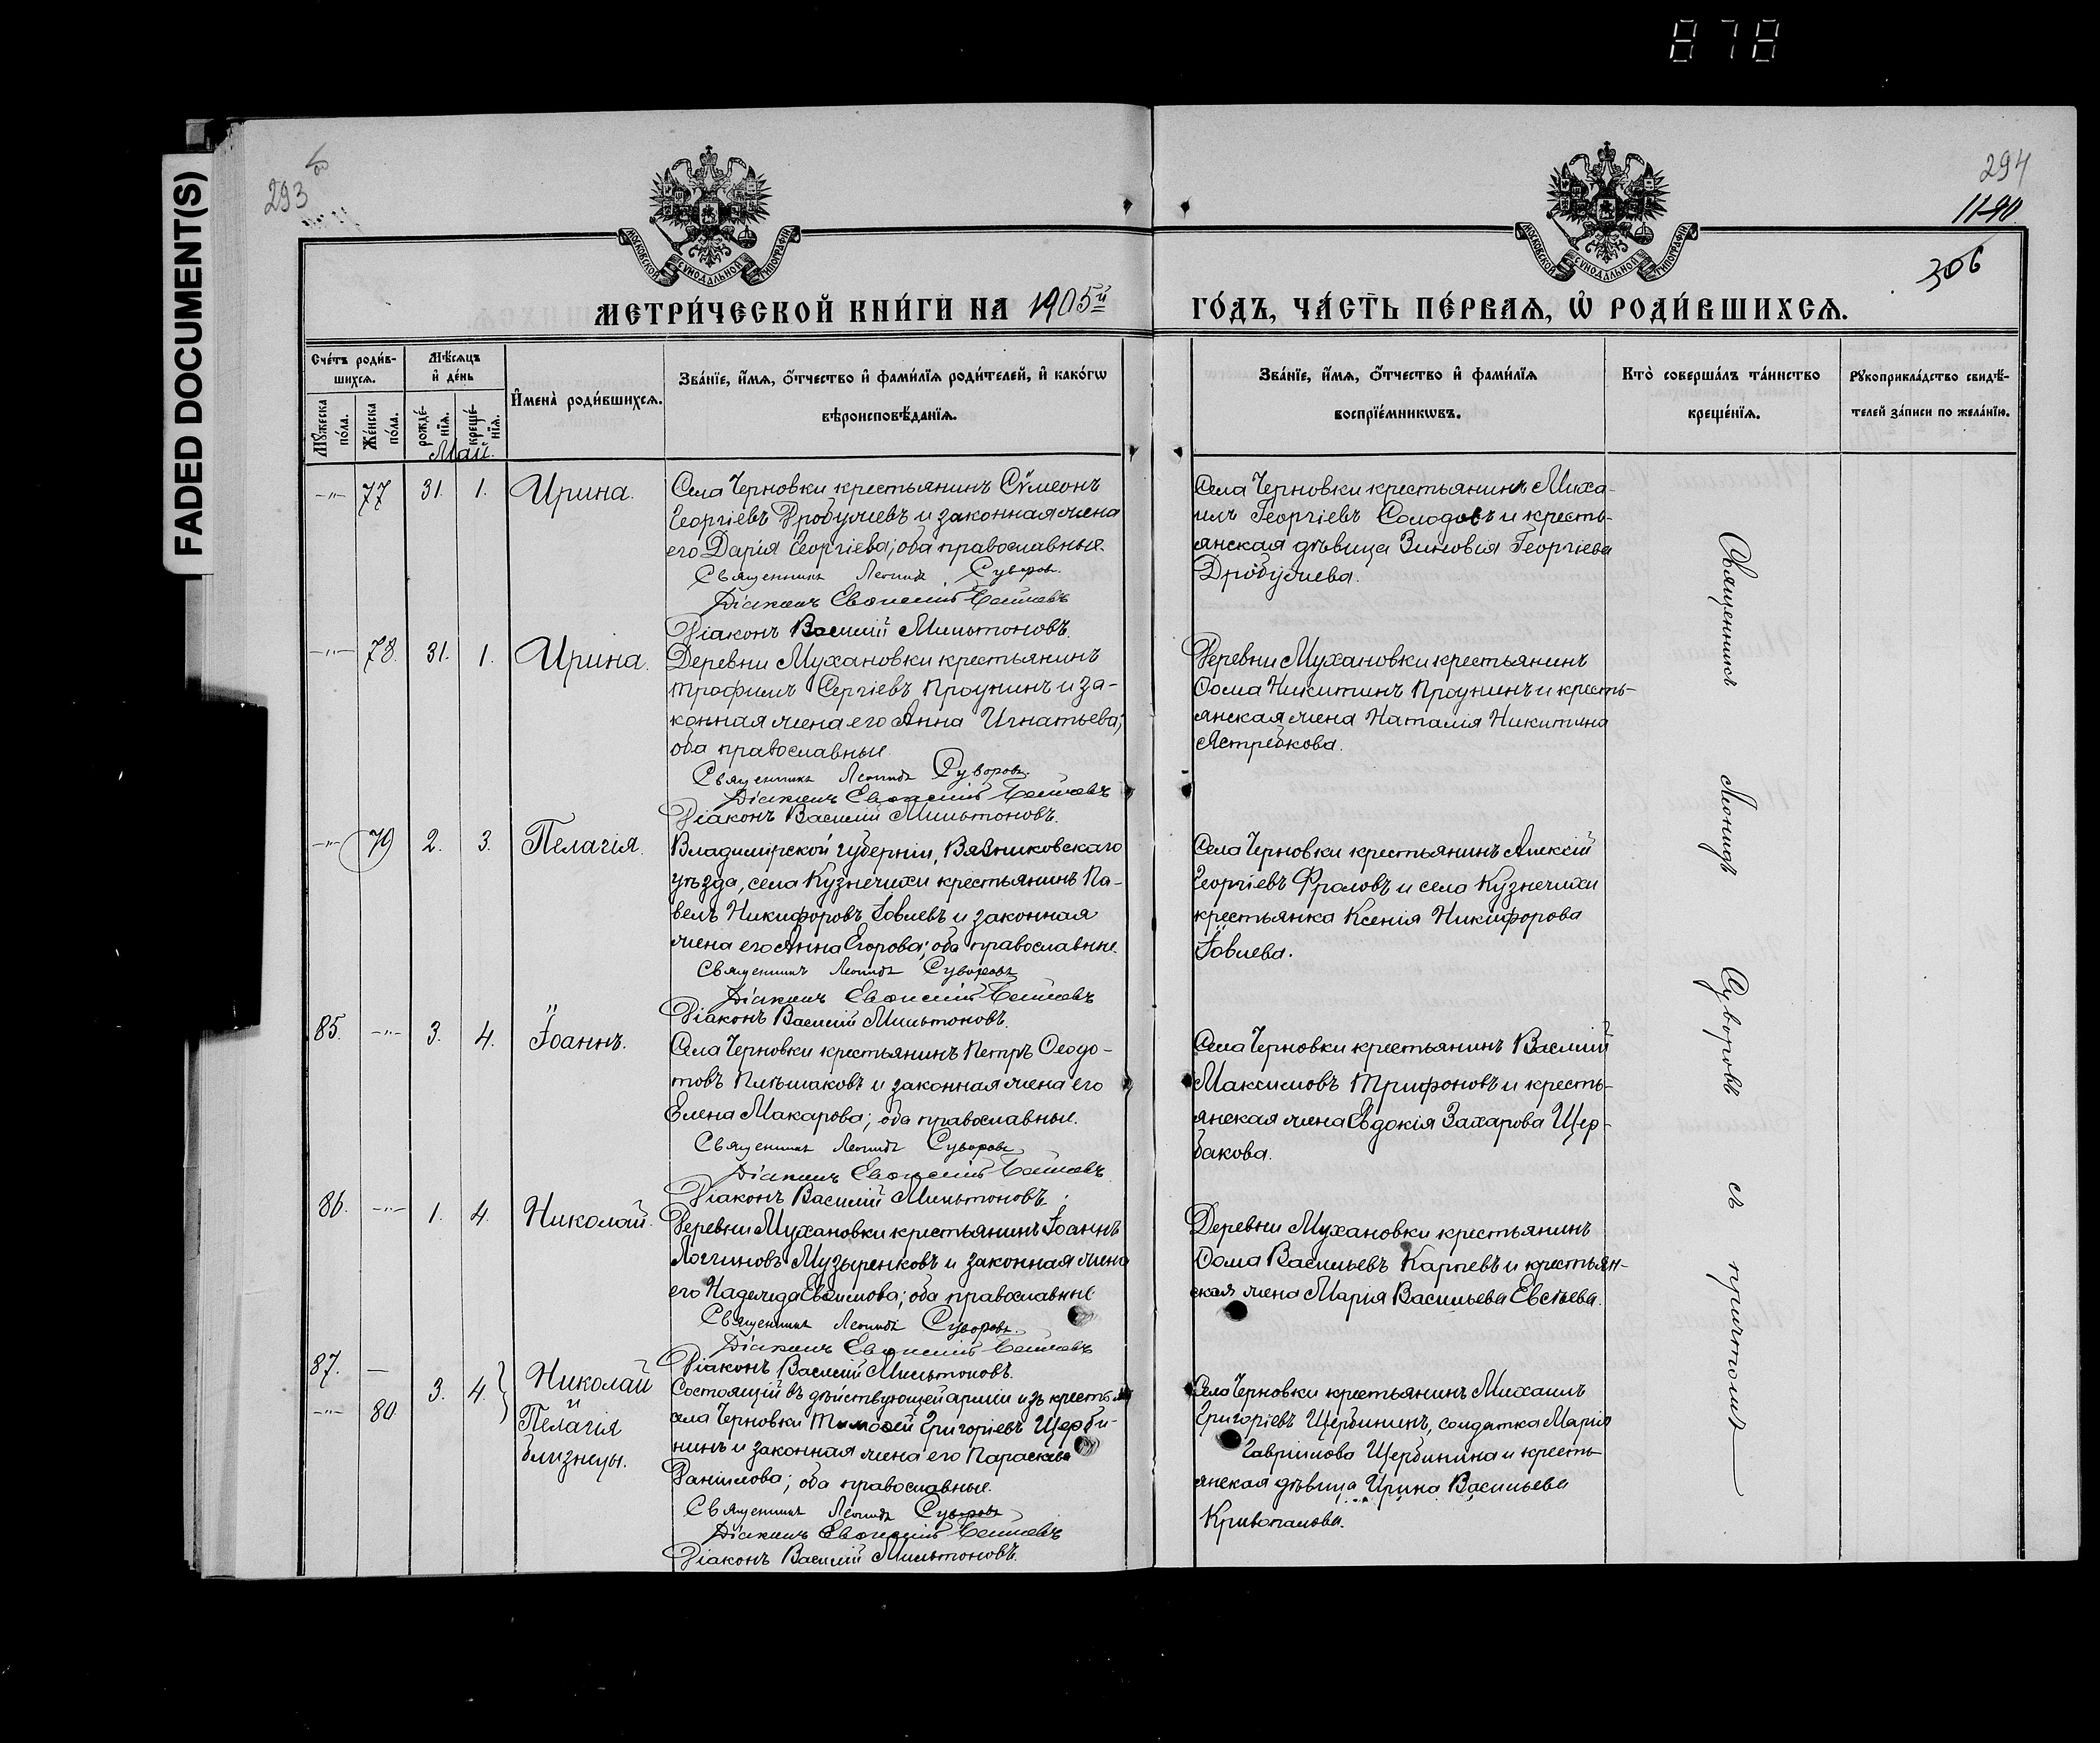 878
FADED DOCUMENT(S)
293
294
1190
306
МОСКОВСКОЙ СѴНОДАЛЬНОЙ ТИПОГРАФІИ
МОСКОВСКОЙ СѴНОДАЛЬНОЙ ТИПОГРАФІИ
МЕТРИ́ЧЕСКОЙ КНИ́ГИ НА 1905й
ГО́ДЪ, ЧА́СТЬ ПЕ́РВАѦ, Ѽ РОДИ́ВШИХСѦ.
Сче́тъ роди́в-
шихсѧ.
Мѣ́сѧцъ
и҆ де́нь
И҆мена̀ роди́вшихсѧ.
Зва́нїе, и҆́мѧ, ѻ҆́тчество и҆ фами́лїѧ роди́телей, и҆ како́гѡ
вѣроисповѣ́данїѧ.
Зва́нїе, и҆́мѧ, ѻ҆́тчество и҆ фами́лїѧ
воспрїе́мникѡвъ.
Кто̀ соверша́лъ та́инство
креще́нїѧ.
Рꙋкоприкла́дство свидѣ́-
телей за́писи по жела́нїю.
Мꙋ́жеска
по́ла.
Же́нска
по́ла.
рожде́-
нїѧ.
креще́-
нїѧ.
Май.
-"- 77 31. 1. Ирина.
Села Черновки крестьянинъ Сѵмеонъ
Георгіевъ Дробужевъ и законная жена
его Дарія Георгіева; оба православные.
Священникъ Леонидъ Суворовъ
Діаконъ
Діаконъ Василій Мильтоновъ.
Села Черновки крестьянинъ Миха-
илъ Георгіевъ Солодовъ и кресть-
янская дѣвица Зиновія Георгіева
Дробужева.
-"- 78. 31. 1. Ирина.
Деревни Мухановки крестьянинъ
Трофимъ Сергіевъ Проунинъ и за-
конная жена его Анна Игнатьева;
оба православные
Священникъ Леонидъ Суворовъ.
Діаконъ
Діаконъ Василій Мильтоновъ.
Деревни Мухановки крестьянинъ
Ѳома Никитинъ Проунинъ и кресть-
янская жена Наталія Никитина
Ястребкова.
-"- 79 2. 3. Пелагія.
Владимірской губерніи, Вязниковскаго
уѣзда, села Кузнечихи крестьянинъ Па-
велъ Никифоровъ Іовлевъ и законная
жена его Анна Егорова; оба православные.
Священникъ Леонидъ Суворовъ
Діаконъ
Діаконъ Василій Мильтоновъ.
Села Черновки крестьянинъ Алексій
Георгіевъ Фроловъ и села Кузнечихи
крестьянка Ксенія Никифорова
Іовлева.
85. -"- 3. 4. Іоаннъ.
Села Черновки крестьянинъ Петръ Ѳеодо-
товъ Плѣшаковъ и законная жена его
Елена Макарова; оба православные.
Священникъ Леонидъ Суворовъ
Діаконъ
Діаконъ Василій Мильтоновъ.
Села Черновки крестьянинъ Василій
Максимовъ Трифоновъ и кресть-
янская жена Евдокія Захарова Щер-
бакова.
86. -"- 1. 4. Николай.
Деревни Мухановки крестьянинъ Іоаннъ
Логгиновъ Музыренковъ и законная жена
его Надежда Евѳимова; оба православные.
Священникъ Леонидъ Суворовъ.
Діаконъ
Діаконъ Василій Мильтоновъ.
Деревни Мухановки крестьянинъ
Ѳома Васильевъ Карпевъ и крестьян-
ская жена Марія Васильева Евсѣева.
87. — 3. 4. Николай
и
-"- 80 Пелагія
близнецы.
Состоящій въ дѣйствующей арміи изъ крестьянъ
села Черновки Тимоѳей Григорьевъ Щерби-
нинъ и законная жена его Параскева
Даніилова; оба православные.
Священникъ Леонидъ Суворовъ
Діаконъ
Діаконъ Василій Мильтоновъ.
Села Черновки крестьянинъ Михаилъ
Григоріевъ Щербининъ, солдатка Марія
Гавріилова Щербинина и кресть-
янская дѣвица Ирина Васильева
Кривопалова.
Священникъ Леонидъ Суворовъ съ причтомъ